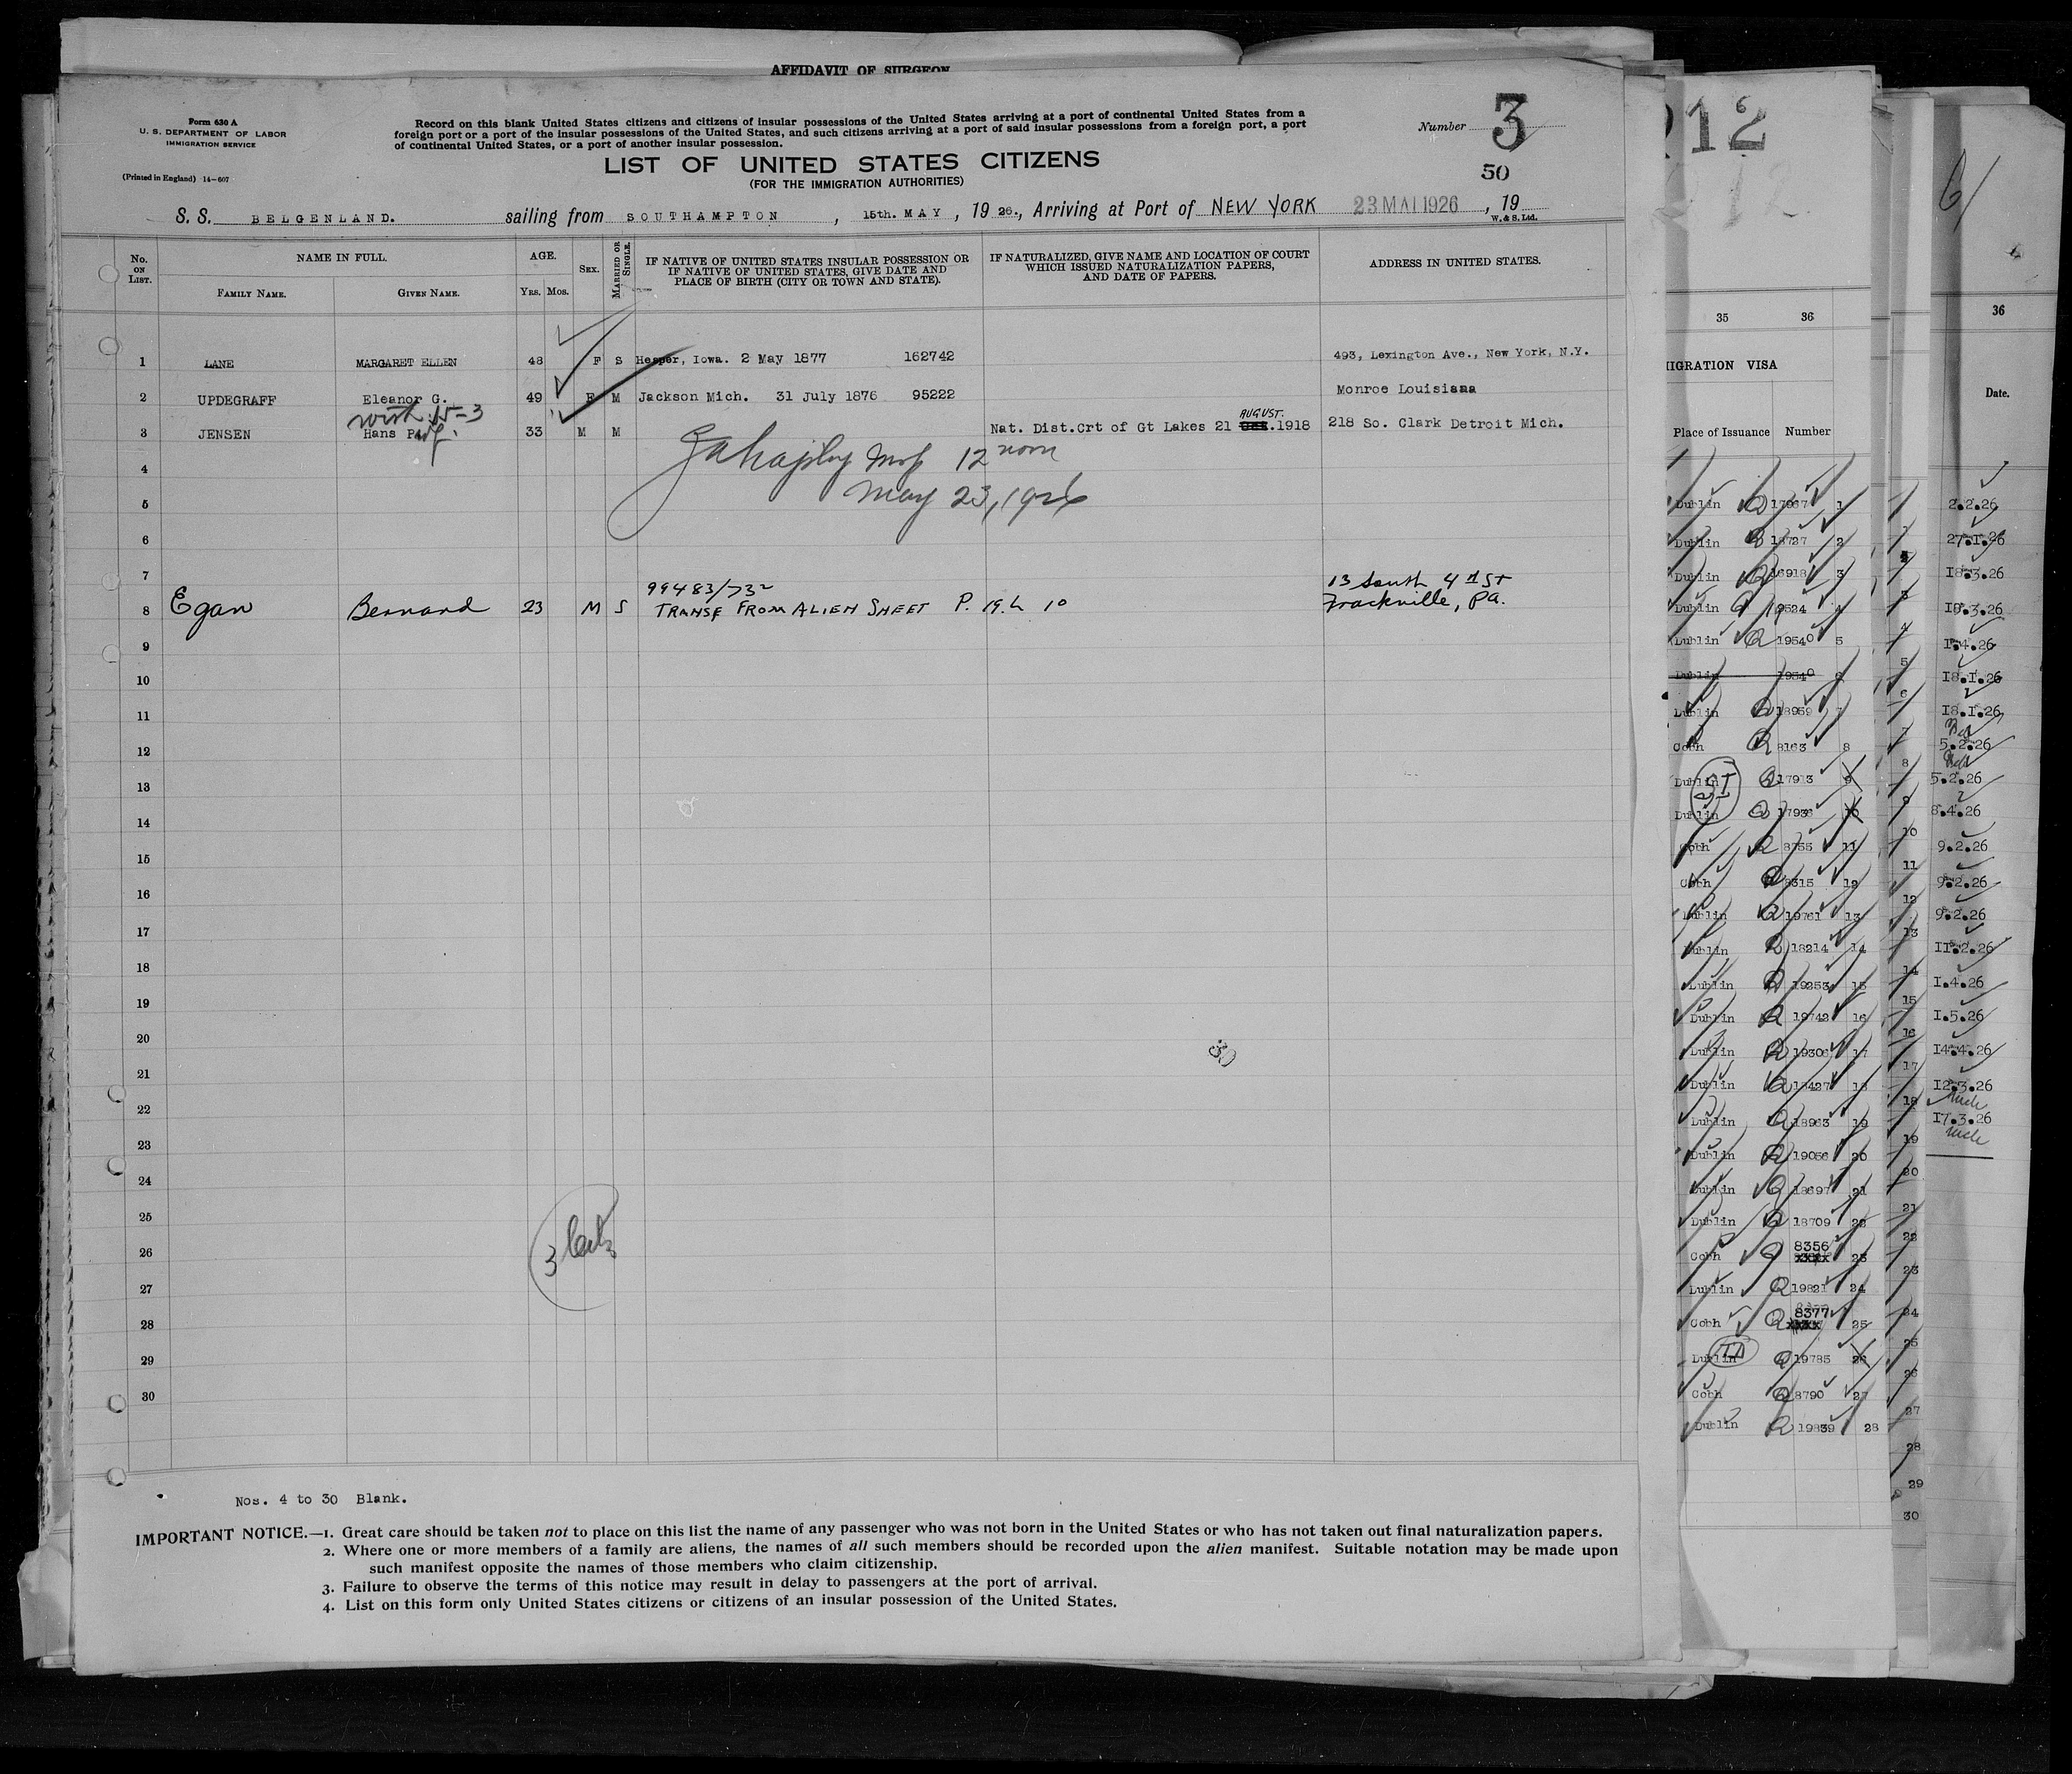 AFFIDAVIT OF SURGEON
Form 630 A
U. S. DEPARTMENT OF LABOR
IMMIGRATION SERVICE
(Printed in England) 14-607
Record on this blank United States citizens and citizens of insular possessions of the United States arriving at a port of continental United States from a
foreign port or a port of the insular possessions of the United States, and such citizens arriving at a port of said insular possessions from a foreign port, a port
of continental United States, or a port of another insular possession.
Number 3
50
LIST OF UNITED STATES CITIZENS
(FOR THE IMMIGRATION AUTHORITIES)
S. S. BELGENLAND. sailing from SOUTHAMPTON , 15th. MAY , 19 26., Arriving at Port of NEW YORK 23 MAI 1926 , 19
W. & S. Ltd.
No. ON LIST. NAME IN FULL. AGE. SEX. MARRIED OR SINGLE. IF NATIVE OF UNITED STATES INSULAR POSSESSION OR IF NATIVE OF UNITED STATES, GIVE DATE AND PLACE OF BIRTH (CITY OR TOWN AND STATE). IF NATURALIZED, GIVE NAME AND LOCATION OF COURT WHICH ISSUED NATURALIZATION PAPERS, AND DATE OF PAPERS. ADDRESS IN UNITED STATES.
FAMILY NAME. GIVEN NAME. YRS. MOS.
1 LANE MARGARET ELLEN 48 F S Hesper, Iowa. 2 May 1877 162742 493, Lexington Ave., New York, N.Y.
2 UPDEGRAFF Eleanor G. 49 F M Jackson Mich. 31 July 1876 95222 Monroe Louisiana
with 15-3
3 JENSEN Hans P. 33 M M Nat. Dist.Crt of Gt Lakes 21 AUGUST. 1918 218 So. Clark Detroit Mich.
4
12 noon
5
May 23, 1926
6
7
99483/732
13 South 4th St
8 Egan Bernard 23 M S TRANSF FROM ALIEN SHEET P. 19. L 10 Frackville, Pa.
9
10
11
12
13
14
15
16
17
18
19
20
30
21
22
23
24
25
26
3
27
28
29
30
Nos. 4 to 30 Blank.
IMPORTANT NOTICE.—1. Great care should be taken not to place on this list the name of any passenger who was not born in the United States or who has not taken out final naturalization papers.
2. Where one or more members of a family are aliens, the names of all such members should be recorded upon the alien manifest. Suitable notation may be made upon
such manifest opposite the names of those members who claim citizenship.
3. Failure to observe the terms of this notice may result in delay to passengers at the port of arrival.
4. List on this form only United States citizens or citizens of an insular possession of the United States.
212
35 36
MIGRATION VISA
Place of Issuance Number
Dublin 17967 1
Dublin 18727 2
Dublin 18918 3
Dublin 19524 4
Dublin 19540 5
Dublin 19540 6
Dublin 18959 7
Cobh 8163 8
Dublin 17913 9
Dublin 17936 10
Cobh 8355 11
Cobh 8315 12
Dublin 19761 13
Dublin 18214 14
Dublin 19253 15
Dublin 19742 16
Dublin 19306 17
Dublin 18427 18
Dublin 18963 19
Dublin 19056 20
Dublin 18697 21
Dublin 18709 22
Cobh 8356 23
Dublin 19821 24
Cobh 8377 25
Dublin 19785 26
Cobh 8790 27
Dublin 19839 28
36
Date.
2.2.26
27.1.26
18.3.26
18.3.26
1.4.26
18.1.26
18.1.26
5.2.26
5.2.26
8.4.26
9.2.26
9.2.26
9.2.26
11.2.26
1.4.26
1.5.26
14.4.26
12.3.26
17.3.26